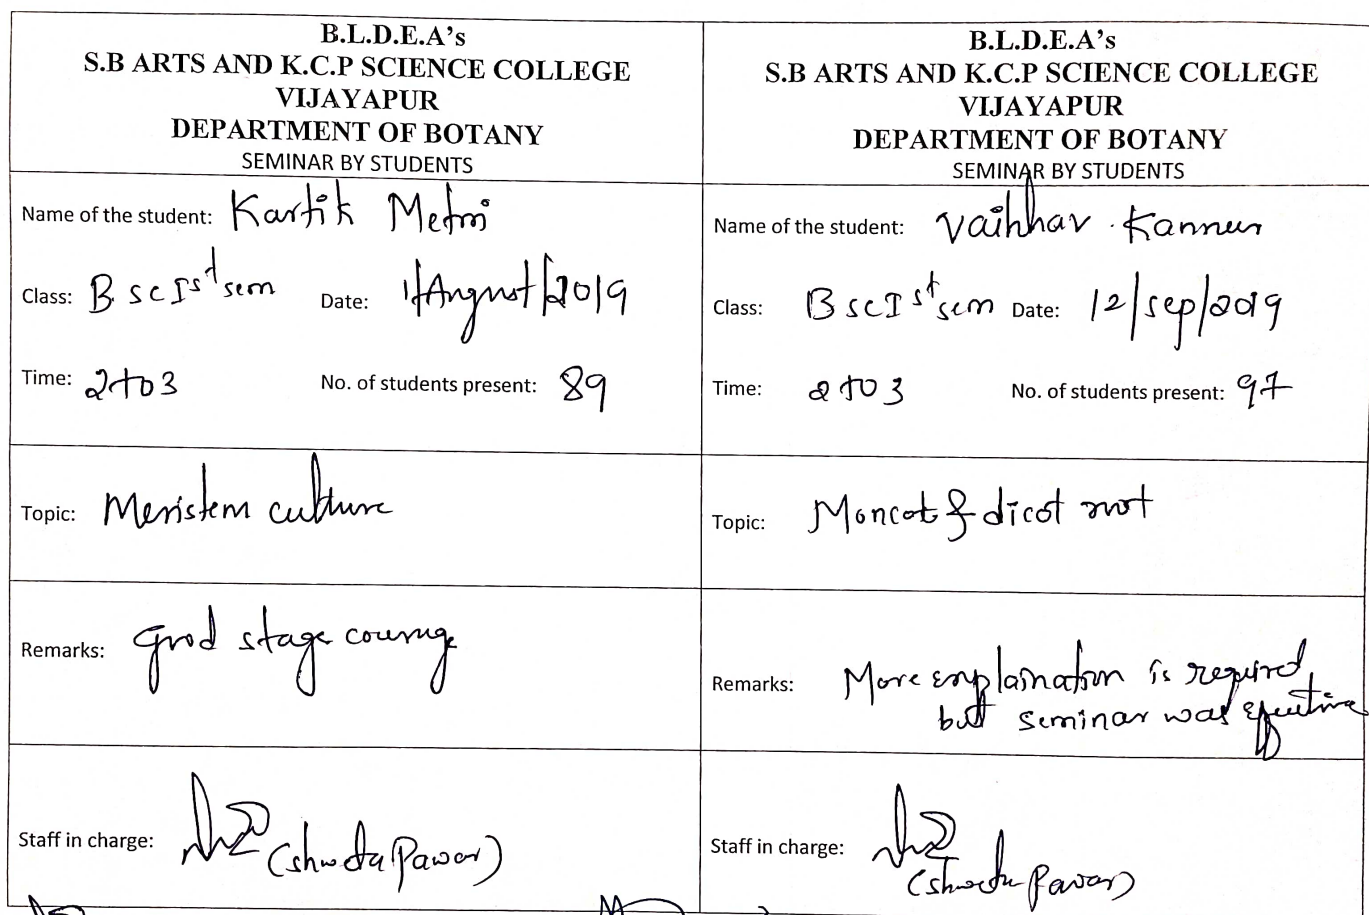 B.L.D.E.A's
S.B ARTS AND K.C.P SCIENCE COLLEGE
VIJAYAPUR
DEPARTMENT OF BOTANY
SEMINAR BY STUDENTS
Name of the student: Kartik Metri
Class: B sc Ist sem Date: 1/August/2019
Time: 2 to 3 No. of students present: 89
Topic: Meristem culture
Remarks: Good stage courage
Staff in charge: (Shweta Pawar)
B.L.D.E.A's
S.B ARTS AND K.C.P SCIENCE COLLEGE
VIJAYAPUR
DEPARTMENT OF BOTANY
SEMINAR BY STUDENTS
Name of the student: Vaibhav . Kannur
Class: B sc Ist sem Date: 12/sep/2019
Time: 2 to 3 No. of students present: 97
Topic: Moncot & dicot root
Remarks: More explaination is required
but seminar was effective
Staff in charge:
(Shweta Pawar)